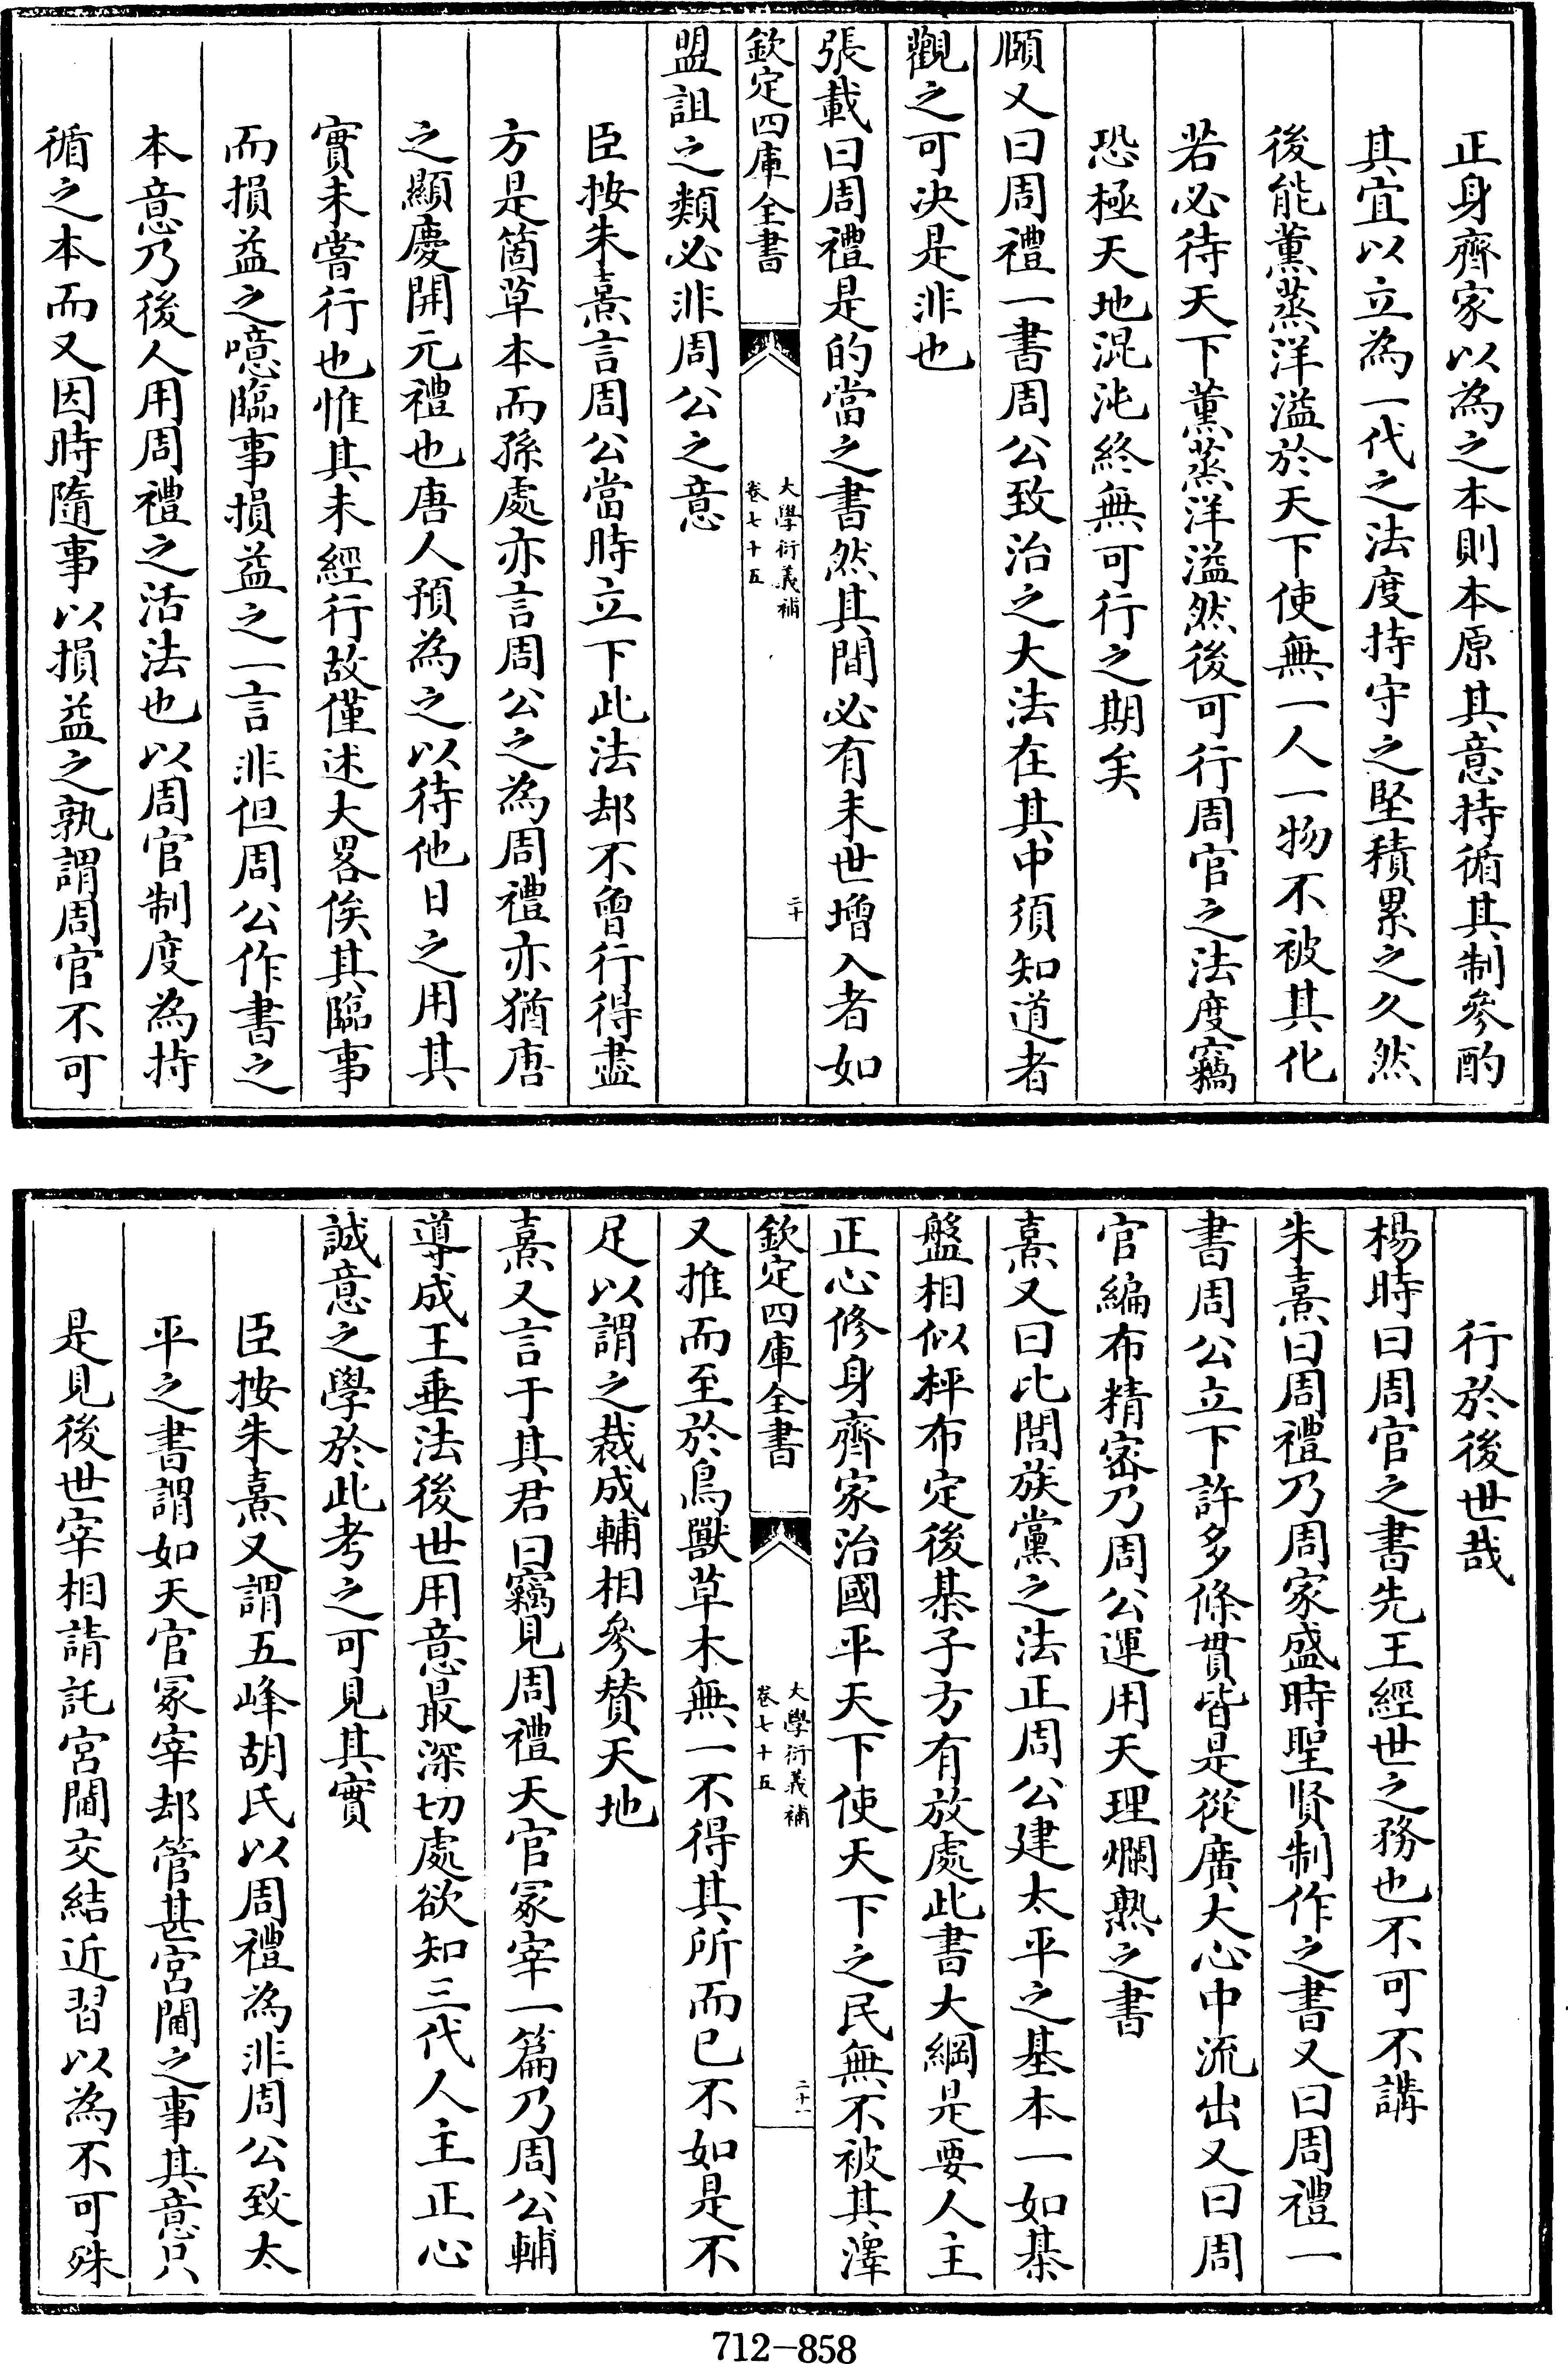 正身齊家以為之本則本原其意持循其制參酌
其宜以立為一代之法度持守之堅積累之久然
後能薰蒸洋溢於天下使無一人一物不被其化
若必待天下薰蒸洋溢然後可行周官之法度竊
恐極天地混沌終無可行之期矣
頤又曰周禮一書周公致治之大法在其中須知道者
觀之可決是非也
張載曰周禮是的當之書然其間必有末世增入者如
欽定四庫全書
大學衍義補
卷七十五
二十
盟詛之類必非周公之意
臣按朱熹言周公當時立下此法却不曾行得盡
方是箇草本而孫處亦言周公之為周禮亦猶唐
之顯慶開元禮也唐人預為之以待他日之用其
實未嘗行也惟其未經行故僅述大畧俟其臨事
而損益之噫臨事損益之一言非但周公作書之
本意乃後人用周禮之活法也以周官制度為持
循之本而又因時隨事以損益之孰謂周官不可
行於後世哉
楊時曰周官之書先王經世之務也不可不講
朱熹曰周禮乃周家盛時聖賢制作之書又曰周禮一
書周公立下許多條貫皆是從廣大心中流出又曰周
官編布精密乃周公運用天理爛熟之書
熹又曰比閭族黨之法正周公建太平之基本一如棊
盤相似枰布定後棊子方有放處此書大綱是要人主
正心修身齊家治國平天下使天下之民無不被其澤
欽定四庫全書
大學衍義補
卷七十五
二十一
又推而至於鳥獸草木無一不得其所而已不如是不
足以謂之裁成輔相參贊天地
熹又言于其君曰竊見周禮天官冢宰一篇乃周公輔
導成王垂法後世用意最深切處欲知三代人主正心
誠意之學於此考之可見其實
臣按朱熹又謂五峰胡氏以周禮為非周公致太
平之書謂如天官冢宰却管甚宮閫之事其意只
是見後世宰相請託宮闈交結近習以為不可殊
712-858